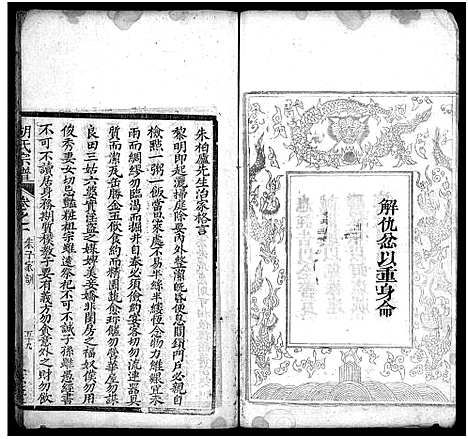 解仇忿以重身命
朱柏廬先生治家格言
黎明即起灑掃庭除要內外整潔既昏便息關鎖門戶必親自
檢點一粥一飯當思來處不易半絲半縷恆念物力維艱宜未
雨而綢繆勿臨渴而掘井自奉必須儉約宴客切勿流連器具
質而潔瓦缶勝金玉飲食約而精園蔬愈珍饈勿營華屋勿謀
良田三姑六婆實淫盜之媒婢美妾嬌非閨房之福奴僕勿用
俊秀妻女切忌艷粧祖宗雖遠祭祀不可不誠子孫雖愚經書
不可不讀居身務期質樸教子要有義方勿貪意外之財勿飲
胡氏宗譜
卷之二
朱子家訓
五十九